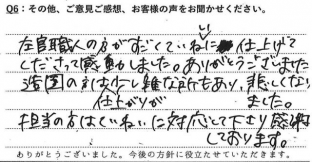 Q6：その他、ご意見ご感想、お客様の声をお聞かせください。
左官職人の方がすごくていねいに仕上げて
くださって感動しました。ありがとうございました
造園の方は少し雑な所もあり、悲しくなり
仕上がりが ました。
担当の方はていねいに対応して下さり感謝
しております。
ありがとうございました。今後の方針に役立たせていただきます。